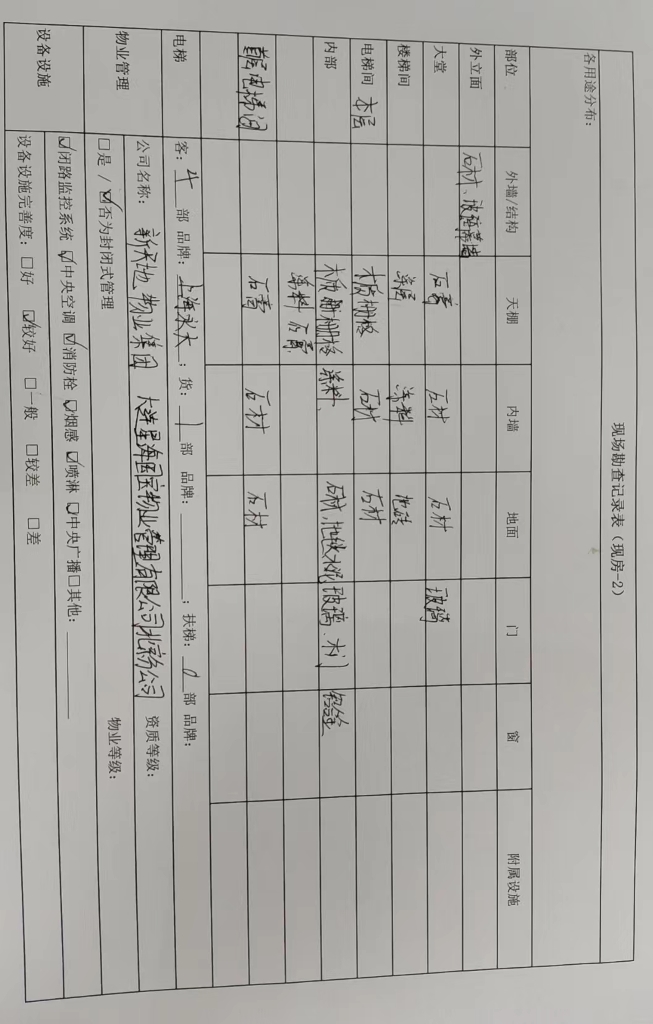 现场勘查记录表（现房-2）
各用途分布：
部位 外墙/结构 天棚 内墙 地面 门 窗 附属设施
外立面 石材、玻璃幕墙
大堂 石膏 石材 石材 玻璃
楼梯间 涂料 地砖
电梯间 本层 木质栅格 石材 石材
内部 木质栅格 涂料 石材、地毯、水泥 玻璃、木门 铝合金
涂料 石膏
电梯间 石膏 石材 石材
电梯 客：4部 品牌：上海永大；货：1部 品牌：；扶梯：0部 品牌：
物业管理 公司名称：新天地物业集团 大连星海国宝物业管理有限公司北京分公司 资质等级：
□是 / ☑否为封闭式管理 物业等级：
设备设施 ☑闭路监控系统 ☑中央空调 ☑消防栓 ☑烟感 ☑喷淋 ☑中央广播□其他：
设备设施完善度：□好 ☑较好 □一般 □较差 □差